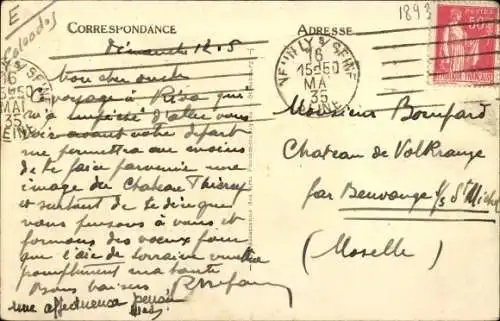 E
Calvados
CORRESPONDANCE
ADRESSE
1893
POSTES
50c
NEUILLY S SEINE
16
15H50
MAI
35
SEINE
Dimanche 12.5
Mon cher oncle
Ce voyage à Riva qui
m'a empêché d'aller vous
voir avant votre départ
me permettra au moins
de te faire parvenir une
image du Chateau Thierry
et surtout de te dire que
nous pensons à vous et
formons des voeux pour
que l'air de lorraine
ma tante
Bons baisers
une affectueuse pensée
Monsieur Bompard
Chateau de Volkrange
par Beuvange s/s St Michel
(Moselle)